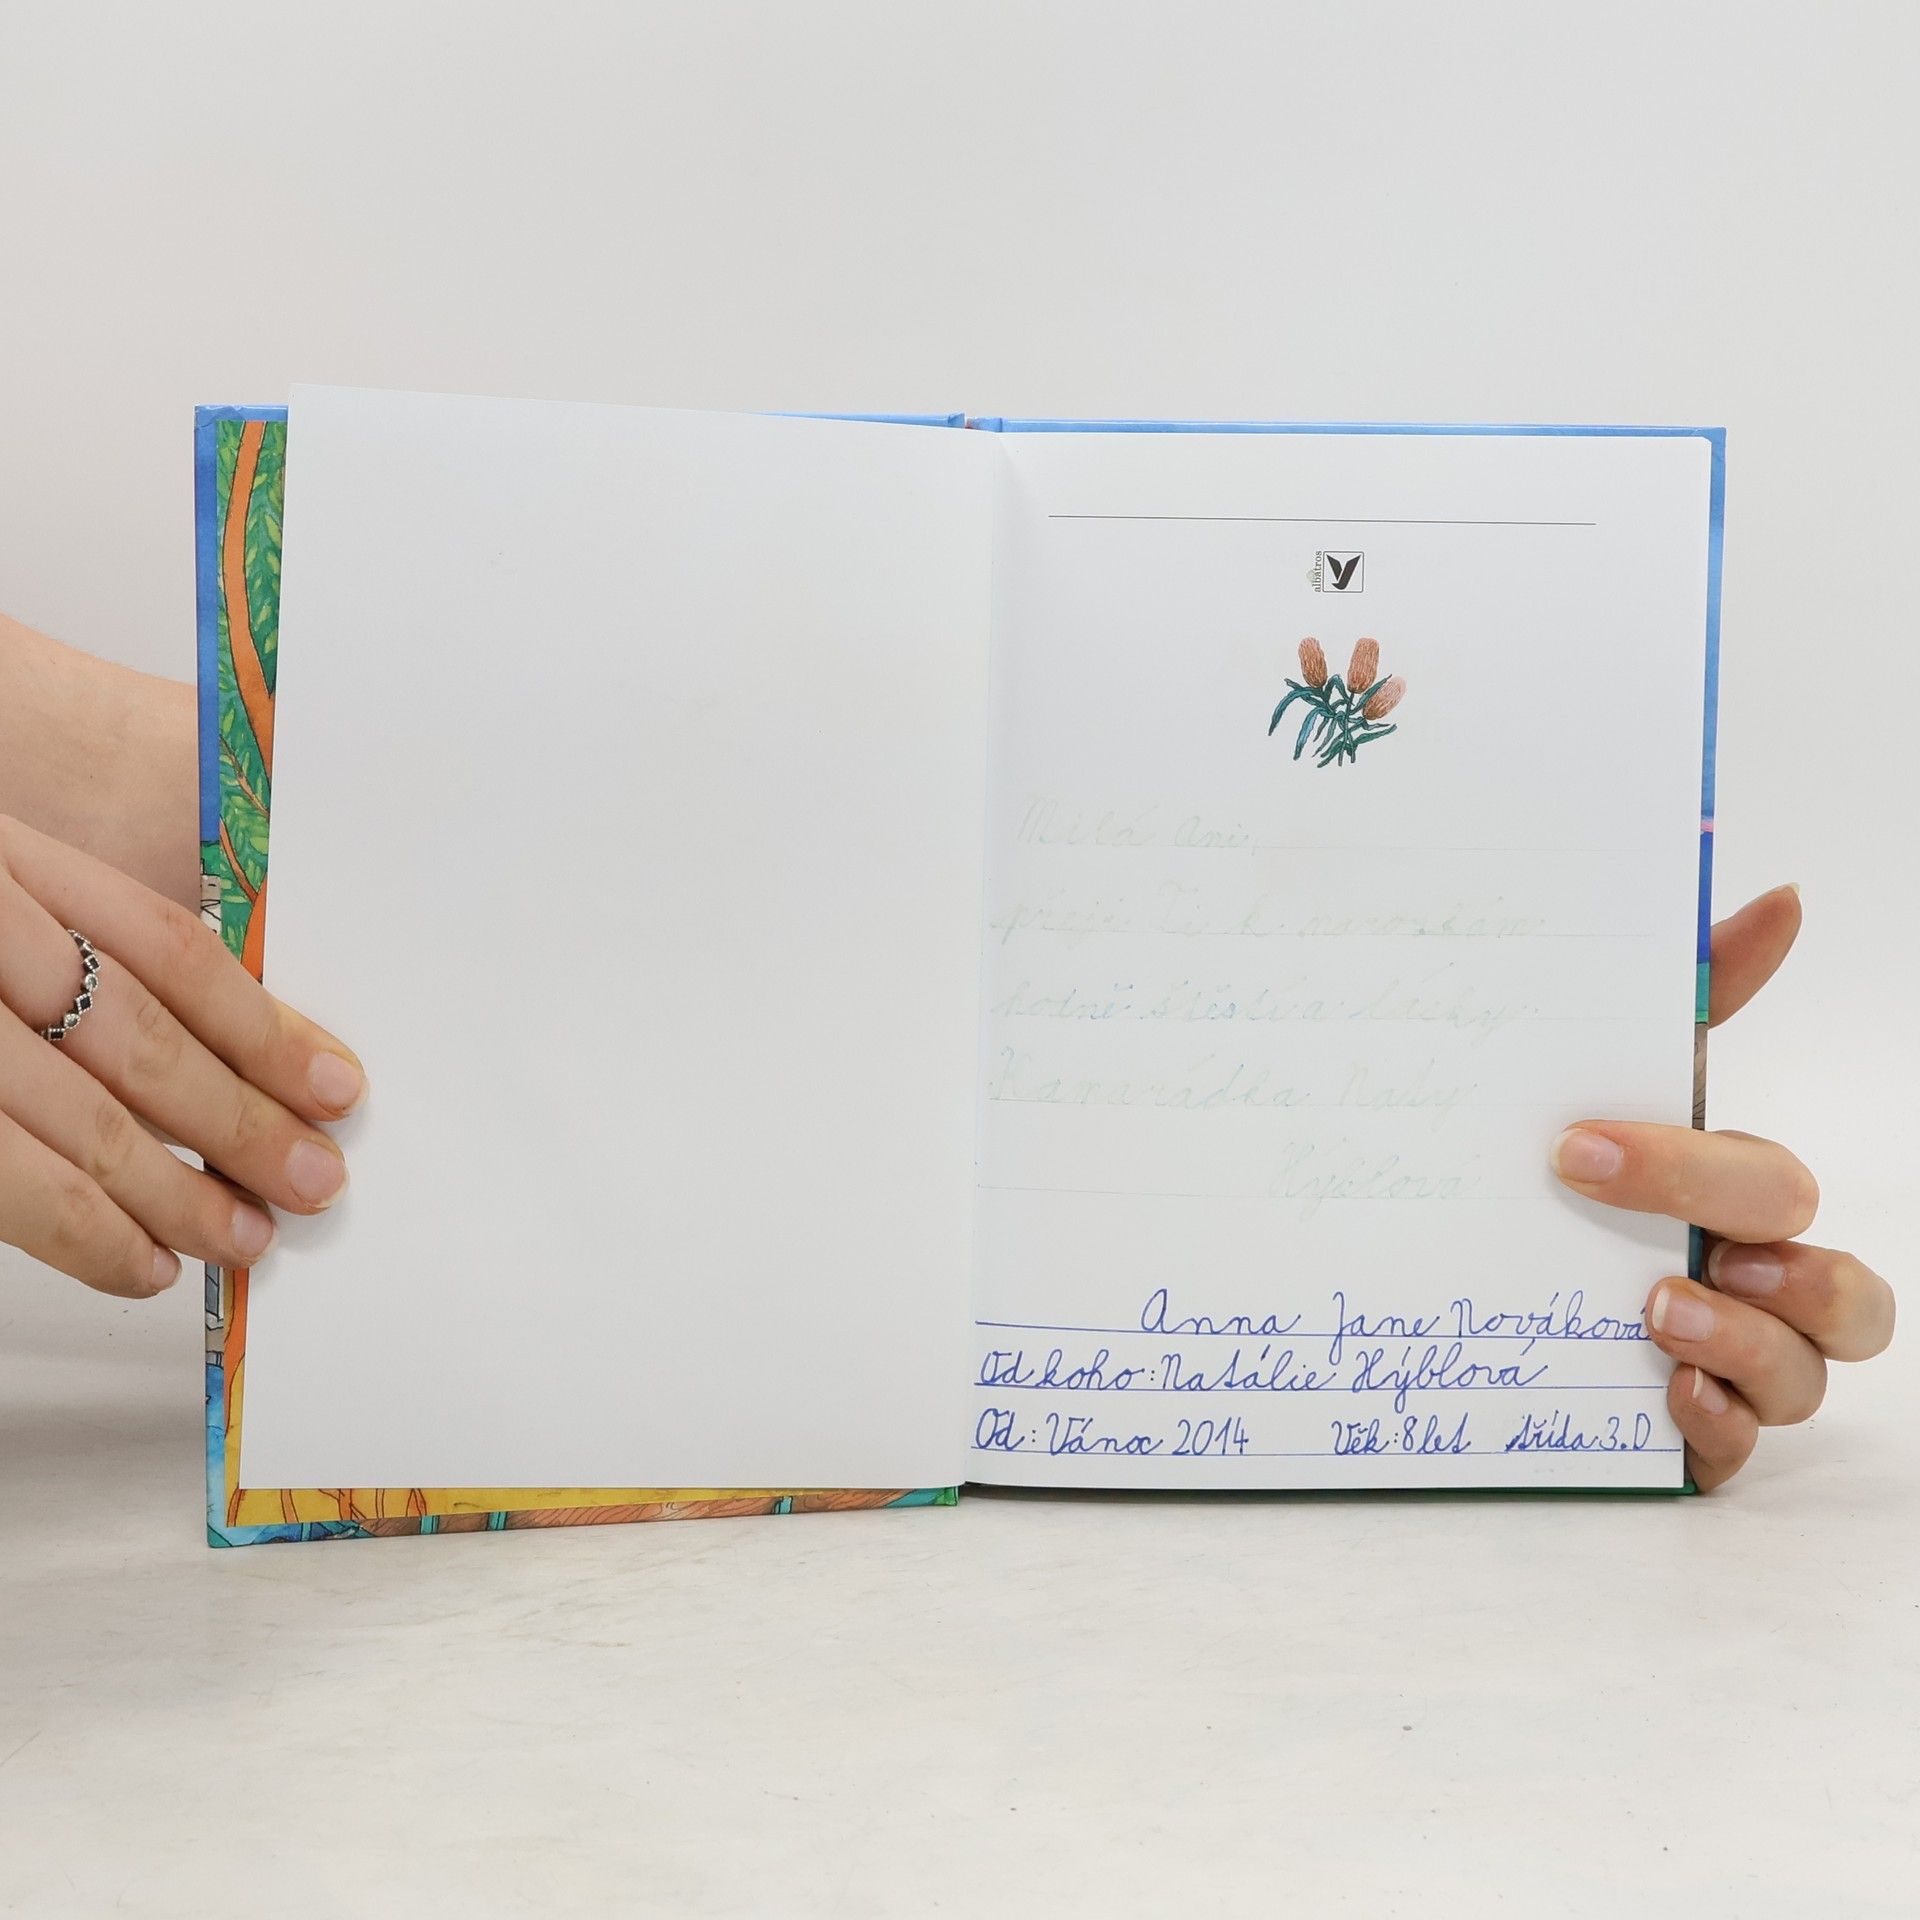 albatros
Milá Ani,
přeji Ti k narozkám
hodně štěstí a lásky
Kamarádka Naty
Hýblová
Anna Jane Nováková
Od koho: Natálie Hýblová
Od: Vánoc 2014 Věk: 8 let třída 3.D